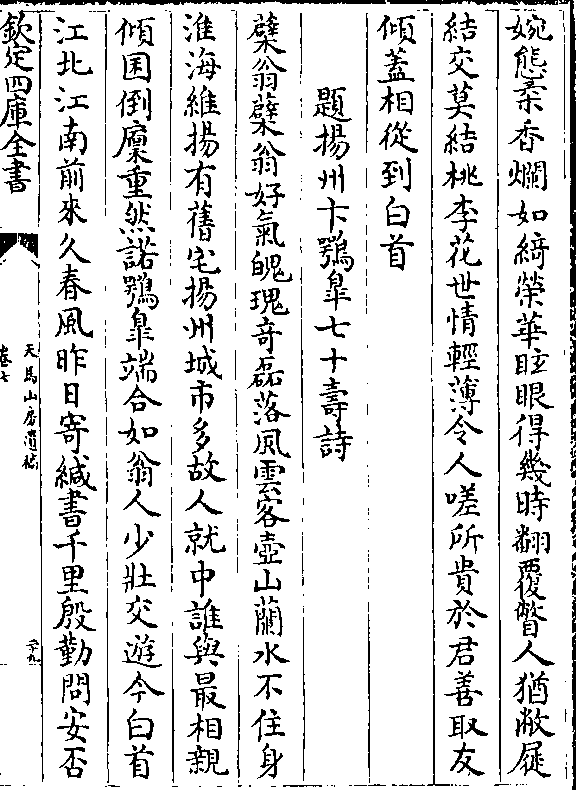 婉態柔香爛如綺榮華眩眼得幾時翻覆瞥人猶敝屣
結交莫結桃李花世情輕薄令人嗟所貴於君善取友
傾蓋相從到白首
題揚州卞鶚皐七十壽詩
櫱翁櫱翁好氣魄瑰奇磊落風雲客壺山蘭水不住身
淮海維揚有舊宅揚州城市多故人就中誰與最相親
傾囷倒廩重然諾鶚皐端合如翁人少壯交遊今白首
江北江南前來久春風昨日寄緘書千里殷勤問安否
欽定四庫全書
天馬山房遺稿
卷七
二十九